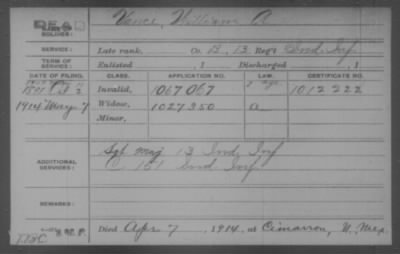 DEAD
NAME OF SOLDIER: Vance, William A.
SERVICE: Late rank, Co. B, 13 Reg't Ind Inf
TERM OF SERVICE: Enlisted , 1 Discharged , 1
DATE OF FILING. CLASS. APPLICATION NO. LAW. CERTIFICATE NO.
1891 Oct 2 Invalid, 1067067 1012222
1914 May 7 Widow, 1027350 a
Minor,
ADDITIONAL SERVICES: Sgt Maj 13 Ind Inf
C 151 Ind Inf
REMARKS:
Died Apr 7, 1914, at Cimarron, N. Mex